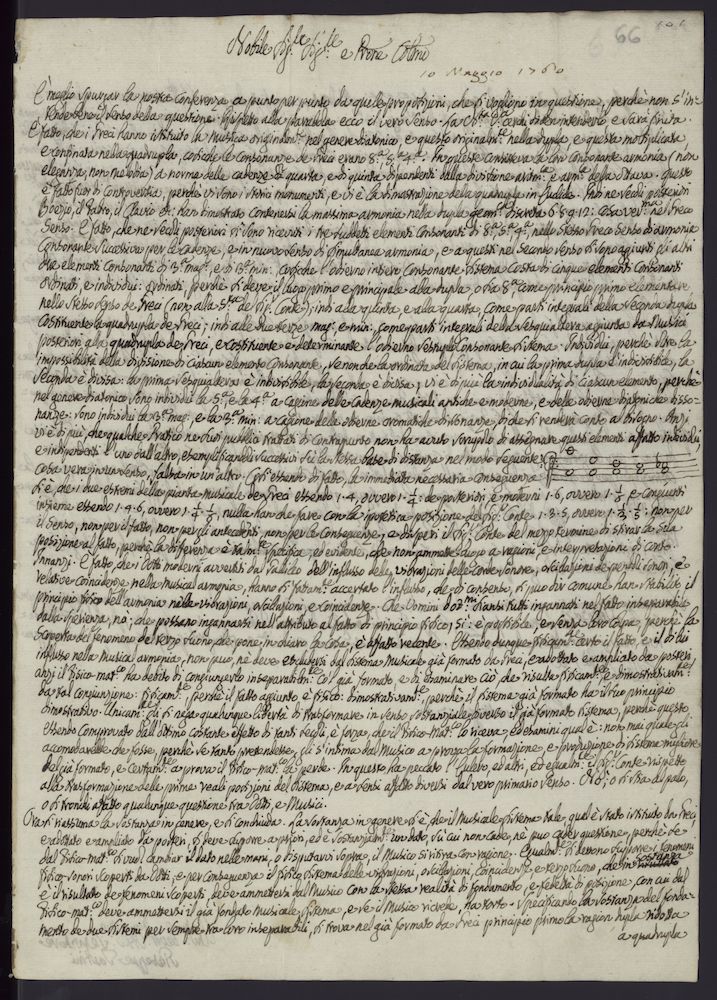 66
Nobile Sig.r Sig.r e Prone Colmo
10 Maggio 1760
È meglio spurgar la nostra conferenza a punto per punto da quelle proposizioni, che si vogliono in questione, perchè non s'in-
tende bene il senso della questione. Rispetto alla parallela ecco il vero senso.
È fatto, che i Greci hanno istituito la Musica nel genere diatonico, e questo nella dupla, e questa moltiplicata
e confinata nella quadrupla, cosicchè le consonanze de Greci erano 8.a 5.a 4.a. In queste consisteva la loro consonante armonia (non
eleganza, non melodia) a norma delle cadenze di quarta, e di quinta dipendenti dalla divisione e della Ottava. Questo
è fatto fuori di controversia, perchè vi sono i monumenti, e vi è la dimostrazione della quadrupla in Euclide. Più ne veddi posteriori
Boezio, il Zarlino, il etc. han dimostrato contenersi la massima armonia nella dupla discreta 6. 8. 9. 12. Cosa nel Greco
senso. È fatto, che ne veddi posteriori si sono ricevuti i tre suddetti elementi consonanti di 8.a 5.a 4.a, nello stesso Greco senso di armonia
consonante successiva per le cadenze, e in nuovo senso di simultanea armonia, e a questi nel secondo senso si sono aggiunti gli altri
due elementi consonanti di 3.a mag.e, e di 3.a min: cosicchè l'odierno intero consonante sistema costa di cinque elementi consonanti
ordinati, e individui: ordinati, perchè si deve il luogo primo e principale alla dupla, o sia 8.a come principio primo elementare
nello stesso senso de Greci (non alla 5.a del Sig. Conte); indi alla quinta, e alla quarta, come parti integrali della seconda dupla
costituente la quadrupla de Greci; indi alle due terze mag: e min:, come parti integrali della sesquialtera aggiunta da Musici
posteriori alla quadrupla de Greci, e costituente e determinante l'odierno sestuplo consonante sistema. Individui, perchè oltre la
impossibilità della divisione di ciascun elemento consonante, se non che la ordinata del sistema, in cui la prima dupla è indivisibile, la
seconda è divisa: la prima sesquialtera è indivisibile, la seconda è divisa; vi è di più la individualità di ciascun elemento, perchè
nel genere diatonico sono individui la 5.a e la 4.a a cagione delle cadenze musicali antiche e moderne, e delle odierne diatoniche disso-
nanze: sono individui la 3.a mag:, e la 3.a min: a cagione delle odierne cromatiche dissonanze, di che si renderà conto al bisogno. Anzi
vi è di più, che qualche Pratico ne suoi pubblici trattati di Contrapunto non ha avuto scrupolo di assegnare questi elementi affatto individui,
e indipendenti l'uno dall'altro, esemplificandoli successivi su la stessa base di distanza nel modo seguente
cosa vera in un senso, falsa in un altro. Così essendo di fatto, la immediata necessaria conseguenza
si è, che i due estremi della pianta musicale de Greci essendo 1. 4, ovvero 1. 1/4: de posteriori, e moderni 1. 6, ovvero 1. 1/6 e congiunti
insieme essendo 1. 4. 6, ovvero 1. 1/4. 1/6, nulla han che fare con la ipotetica posizione del Sig. Conte 1. 3. 5, ovvero 1. 1/3. 1/5: non per
il senso, non per il fatto, non per gli antecedenti, non per le conseguenze, e disperi il Sig. Conte del mezzo termine di stirar la sua
posizione al fatto, perchè la differenza è specifica, ed evidente, che non ammette luogo a ragioni, e interpretazioni di conto.
Innanzi. È fatto, che i Dotti moderni avvertiti dal Galileo dell'influsso delle vibrazioni delle corde sonore, oscillazioni de penduli sonori, e
relative coincidenze nella musical armonia, hanno accertato l'influsso, che di consenso, si può dir comune han stabilito il
principio fisico dell'armonia nelle vibrazioni, oscillazioni, e coincidenze. Che Uomini siansi tutti ingannati nel fatto inseparabile
dalla sperienza, no; che possano ingannarsi nell'attributo al fatto di principio fisico, sì: è possibile, e senza loro colpa, perchè la
scoperta del fenomeno del terzo suono, che pone in chiaro la cosa, è affatto recente. Essendo dunque certo il fatto, e il di lui
influsso nella Musical armonia, non può, nè deve escludersi dal sistema Musicale già formato da Greci, e adottato e ampliato da posteri
anzi il Fisico-mat.co ha debito di congiungerlo col già formato, e di esaminare ciò che risulta e
da tal congiunzione: perchè il fatto aggiunto è fisico: perchè il sistema già formato ha il suo principio
dimostrativo. gli si nega qualunque libertà di trasformare in senso sostanzialmente diverso il già formato sistema, perchè questo
essendo comprovato dall'ottimo costante effetto di tanti secoli, è forza, che il Fisico-mat.co lo riceva, ed esamini qual è: non mai quale gli
accomodarebbe che fosse, perchè se tanto pretendesse, gli s'intima dal Musico a prova la formazione, e produzione di sistema migliore
del già formato, e a prova il Fisico-mat.co la perde. In questo ha peccato l'Eulero, ed altri, ed il Sig. Conte rispetto
alla trasformazione delle prime reali posizioni del sistema, e a sensi affatto diversi dal vero primario senso. O sì, o si sta di palo,
o si tronchi affatto qualunque questione tra Dotti, e Musici.
Ora si riassuma la sostanza in genere, e si conchiuda. La sostanza in genere si è, che il Musicale sistema tale, qual è stato istituito da Greci,
e adottato e ampliato da posteri, si deve supporre a priori, ed è un dato, su cui non cade, nè può cader questione, perchè se
dal Fisico-mat.co si vuol cambiar il dato nelle mani, o disputarvi sopra, il Musico si ritira con ragione. si devono supporre i fenomeni
fisico-sonori scoperti da Dotti, e per conseguenza il fisico sistema delle vibrazioni, oscillazioni, coincidenze, e terzo suono, che in sostanza
è il risultato de fenomeni scoperti, deve ammettersi dal Musico con la stessa realità di fondamento, e fedeltà di posizione, con cui dal
Fisico-mat.co deve ammettersi il già formato musicale sistema, e se il Musico ricusa, ha torto. Specificando la sostanza del fonda-
mento de due sistemi per sempre tra loro inseparabili, si trova nel già formato da Greci principio primo la ragion dupla ridotta
a quadrupla